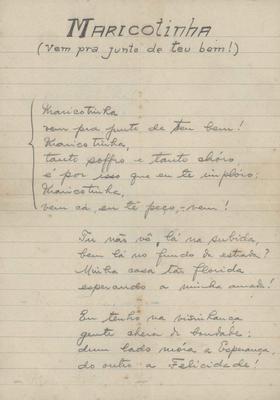 MARICOTINHA
(Vem pra junto de teu bem!)
Maricotinha
vem pra junto de teu bem!
Maricotinha,
tanto soffro e tanto chóro,
é por isso que eu te implóro:
Maricotinha,
vem cá, eu te peço, - vem!
Tu não vê, lá na subida,
bem lá no fundo da estrada?
Minha casa tão florida
esperando a minha amada!
Eu tenho na visinhança
gente cheia de bondade:
dum lado móra a Esperança,
do outro a Felicidade!